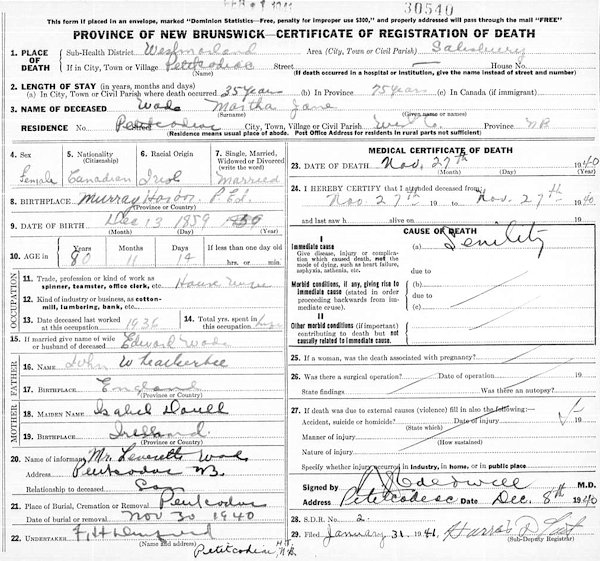 If this form is placed in an envelope, marked "Dominion Statistics—Free, penalty for improper use $300," and properly addressed will pass through the mail "FREE"
30540
PROVINCE OF NEW BRUNSWICK—CERTIFICATE OF REGISTRATION OF DEATH
1. PLACE OF DEATH Sub-Health District Westmorland Area (City, Town or Civil Parish) Salisbury
If in City, Town or Village Petitcodiac (Name) Street House No.
(If death occurred in a hospital or institution, give the name instead of street and number)
2. LENGTH OF STAY (in years, months and days)
(a) In City, Town or Civil Parish where death occurred 35 years (b) in Province 75 years (c) in Canada (if immigrant)
3. NAME OF DECEASED Wade (Surname) Martha Jane (Given name or names)
RESIDENCE No. Street City, Town, Village or Civil Parish Province NB
(Residence means usual place of abode. Post Office Address for residents in rural parts not sufficient)
4. Sex Female
5. Nationality (Citizenship) Canadian
6. Racial Origin Irish
7. Single, Married, Widowed or Divorced (write the word) Married
8. BIRTHPLACE Murray Harbor P.E.I. (Province or Country)
9. DATE OF BIRTH Dec 13 1859
(Month) (Day) (Year)
10. AGE in Years 80 Months 11 Days 14 If less than one day old hrs. or min.
OCCUPATION
11. Trade, profession or kind of work as spinner, teamster, office clerk, etc. House Wife
12. Kind of industry or business, as cotton-mill, lumbering, bank, etc.
13. Date deceased last worked at this occupation 1936
14. Total yrs. spent in this occupation
15. If married give name of wife or husband of deceased Edward Wade
FATHER
16. NAME John W
17. BIRTHPLACE England (Province or Country)
MOTHER
18. MAIDEN NAME Isabel
19. BIRTHPLACE Ireland (Province or Country)
20. Name of informant Mr. Leverette Wade
Address Petitcodiac NB
Relationship to deceased Son
21. Place of Burial, Cremation or Removal Petitcodiac
Date of burial or removal Nov 30 1940
22. UNDERTAKER F. H.
(Name and address) Petitcodiac, NB
MEDICAL CERTIFICATE OF DEATH
23. DATE OF DEATH Nov. 27th 1940
24. I HEREBY CERTIFY that I attended deceased from:
Nov. 27th 19 to Nov. 27th 1940
and last saw h alive on 19
CAUSE OF DEATH
I
Immediate cause (a) Senility
Give disease, injury or complication which caused death, not the mode of dying, such as heart failure, asphyxia, asthenia, etc.
due to
Morbid conditions, if any, giving rise to immediate cause (stated in order proceeding backwards from immediate cause).
(b)
due to
(c)
II
Other morbid conditions (if important) contributing to death but not causally related to immediate cause.
25. If a woman, was the death associated with pregnancy?
26. Was there a surgical operation? Date of operation 19
State findings Was there an autopsy?
27. If death was due to external causes (violence) fill in also the following:—
Accident, suicide or homicide? Date of injury 19
(State which)
Manner of injury
(How sustained)
Nature of injury
Specify whether injury occurred in industry, in home, or in public place
Signed by M.D.
Address Petitcodiac Date Dec. 8th 1940
28. S.D.R. No. 2.
29. Filed January 31. 1941, Harris D.
(Sub-Deputy Registrar)